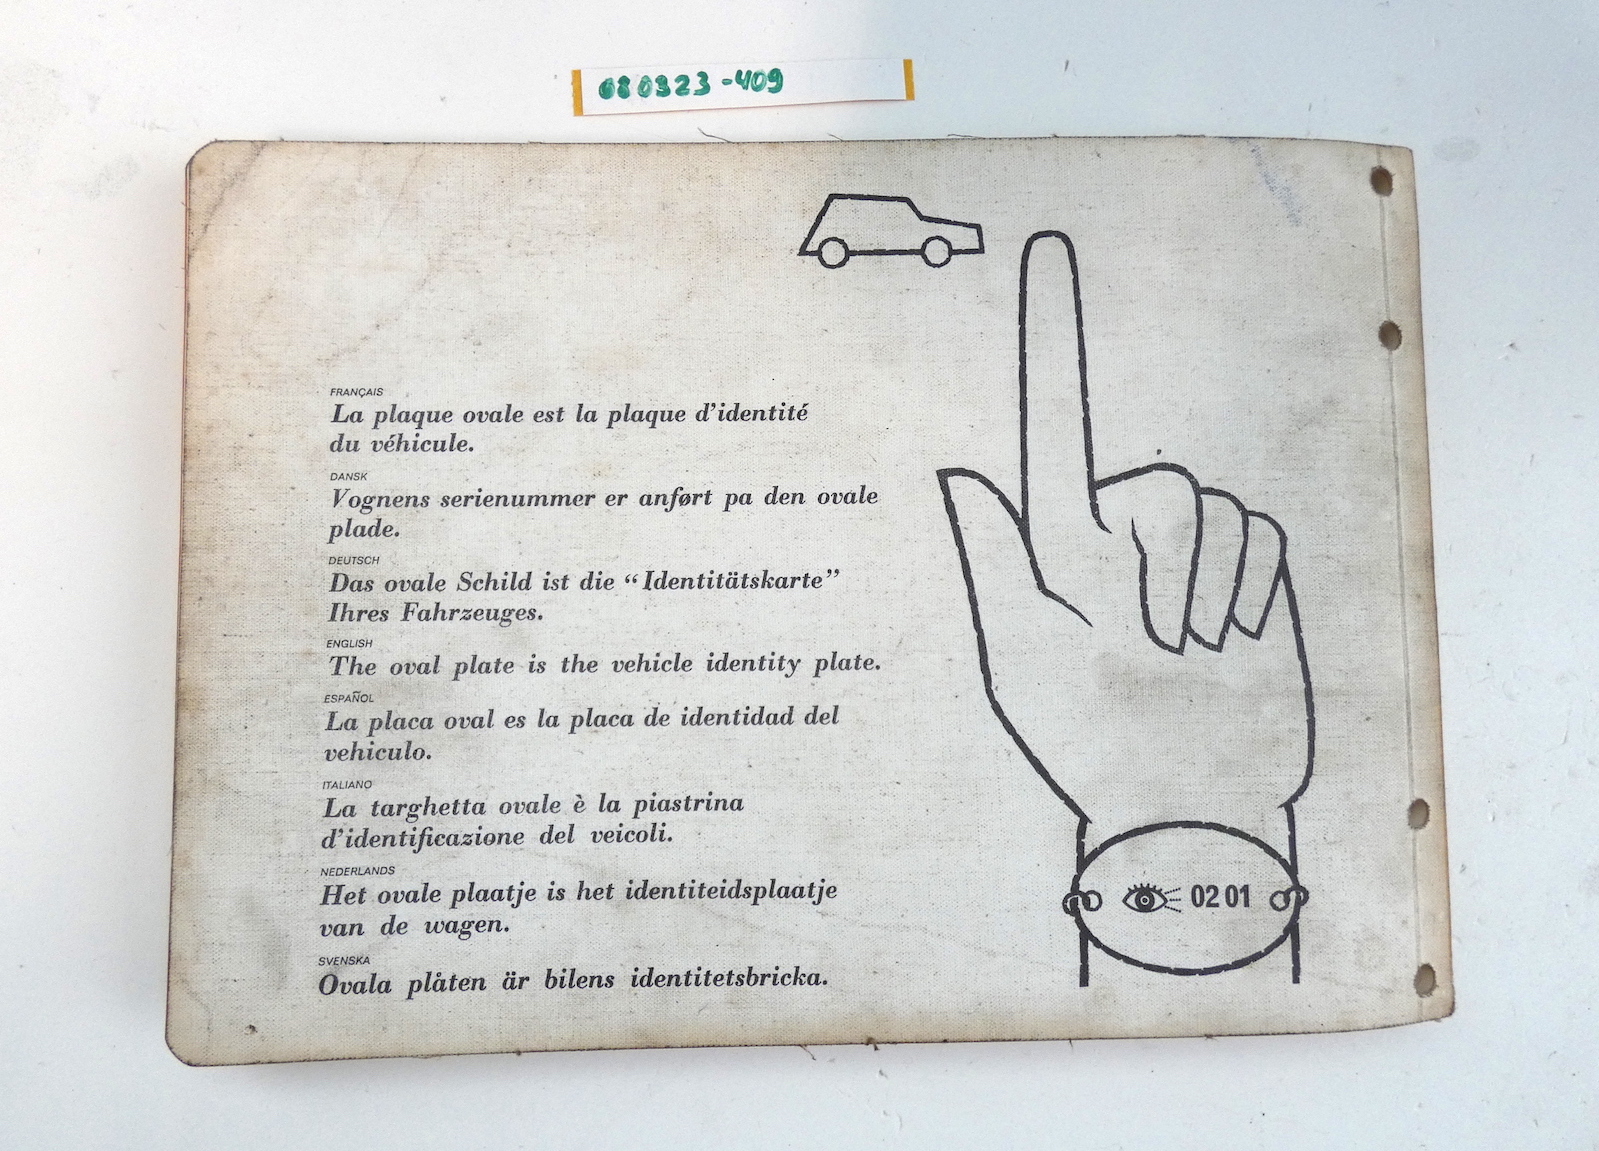 080323-409
FRANÇAIS
La plaque ovale est la plaque d'identité
du véhicule.
DANSK
Vognens serienummer er anført pa den ovale
plade.
DEUTSCH
Das ovale Schild ist die “Identitätskarte”
Ihres Fahrzeuges.
ENGLISH
The oval plate is the vehicle identity plate.
ESPAÑOL
La placa oval es la placa de identidad del
vehiculo.
ITALIANO
La targhetta ovale è la piastrina
d'identificazione del veicoli.
NEDERLANDS
Het ovale plaatje is het identiteidsplaatje
van de wagen.
SVENSKA
Ovala plåten är bilens identitetsbricka.
02 01